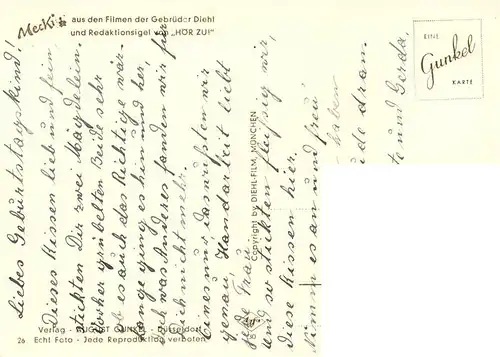 Mecki aus den Filmen der Gebrüder Diehl
und Redaktionsigel von „HÖR ZU!"
EINE
Gunkel
KARTE
Liebes Geburtstagskind!
Dieses Kissen lieb und fein,
stickten Dir zwei Mägdelein.
Vorher grübelten Beide sehr
ob es auch das Richtige wär.
Lange ging es hin und her,
doch was Anderes fanden wir für
Dich nicht mehr.
Eines nur, das wußten wir
genau, Handarbeit liebt
jede Frau,
und so stickten fleißig wir
diese Kissen hier.
Nimm es an und freu'
haben
dran.
und Gerda.
Copyright by DIEHL-FILM, MÜNCHEN
Verlag - AUGUST GUNKEL - Düsseldorf
26 Echt Foto - Jede Reproduktion verboten